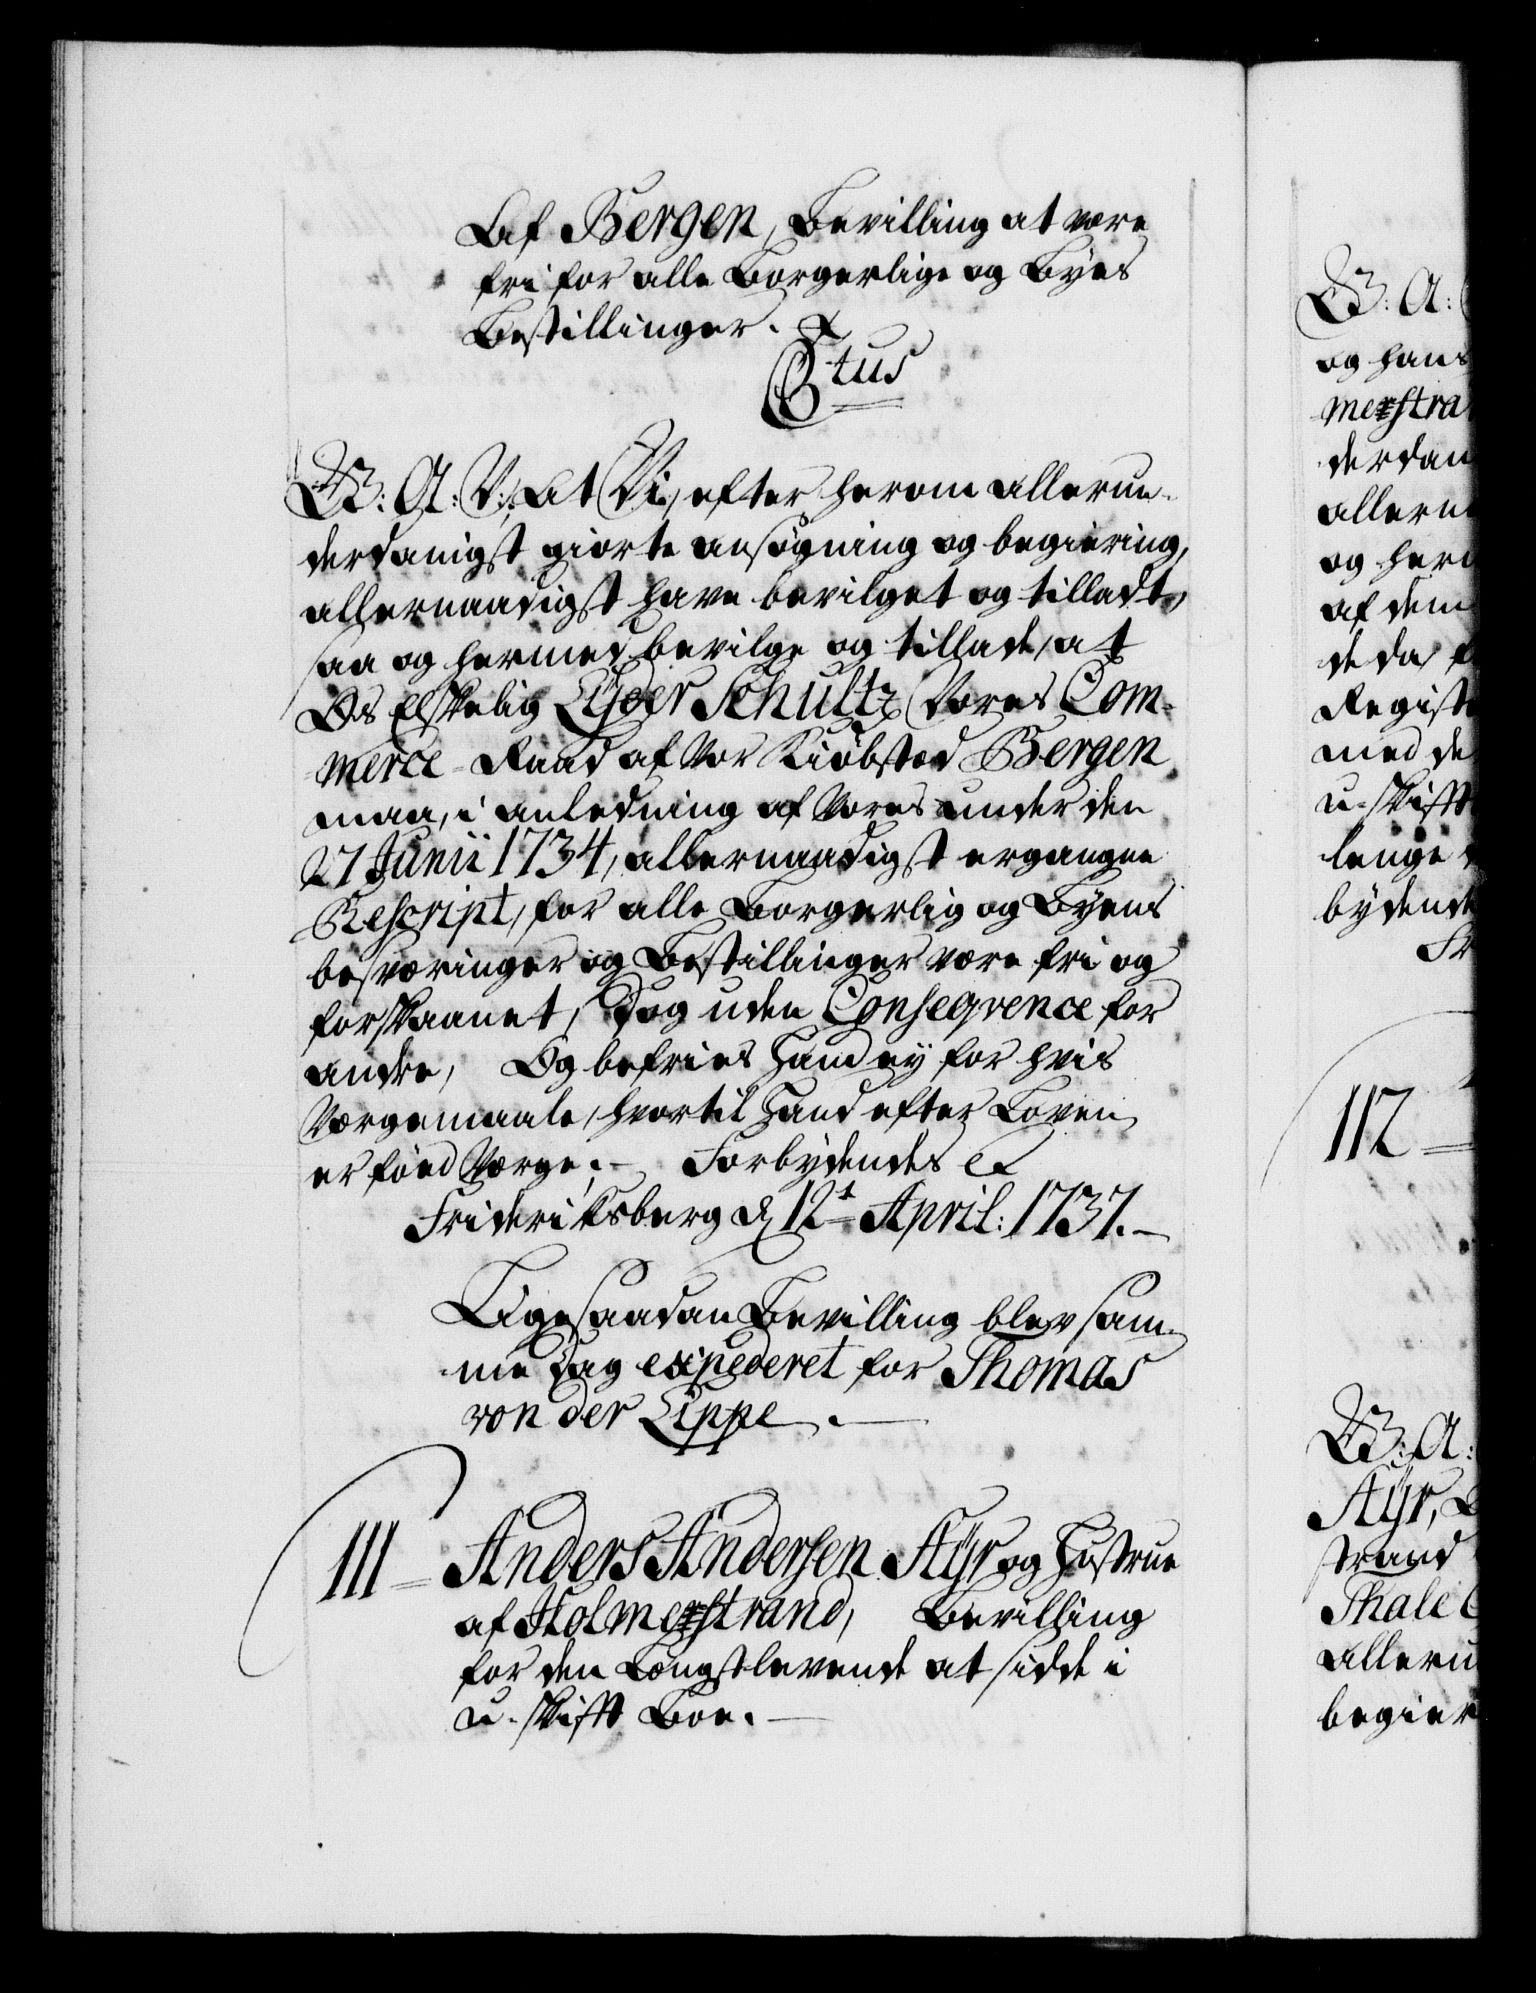 Af Bergen, Bevilling at være
fri for alle Borgerlige og Byes
Bestillinger.
C6tus
W: A: V:, At Vi, efter herom allerun-
derdanigst giorte ansøgning og begiering,
allernaadigst have bevilget og tilladt,
saa og hermed bevilge og tillade, at
Os Elskelig Lyder Schultz Vores Com-
merce-Raad af Vor Kiøbsted Bergen
maa, i anledning af Vores under den
27 Junii 1734, allernaadigst ergangne
Rescript, for alle Borgerlig og Byens
besværinger og Bestillinger være fri og
forskaanet, Dog uden Conseqvence for
andre, Og befries Hand ey for hvis
Værgemaale, hvortil Hand efter Loven
er føed Værge; - Forbydendes &
Frideriksberg d 12t April: 1737. -
Ligesaadan Bevilling blev sam-
me Dag expederet for Thomas
von der Lippe. -
111 - Anders Andersen Ayr og Hustrue
af Holmestrand, Bevilling
for den Længstlevende at sidde i
u-skifft Boe. -
W: A:
og hans
mestra
derdan
allern
og her
af dem
de da
Regist
med de
u-skifft
lenge
bydende
Fr
112 -
W: A:
Ayr,
strand
Thale
alleru
begier